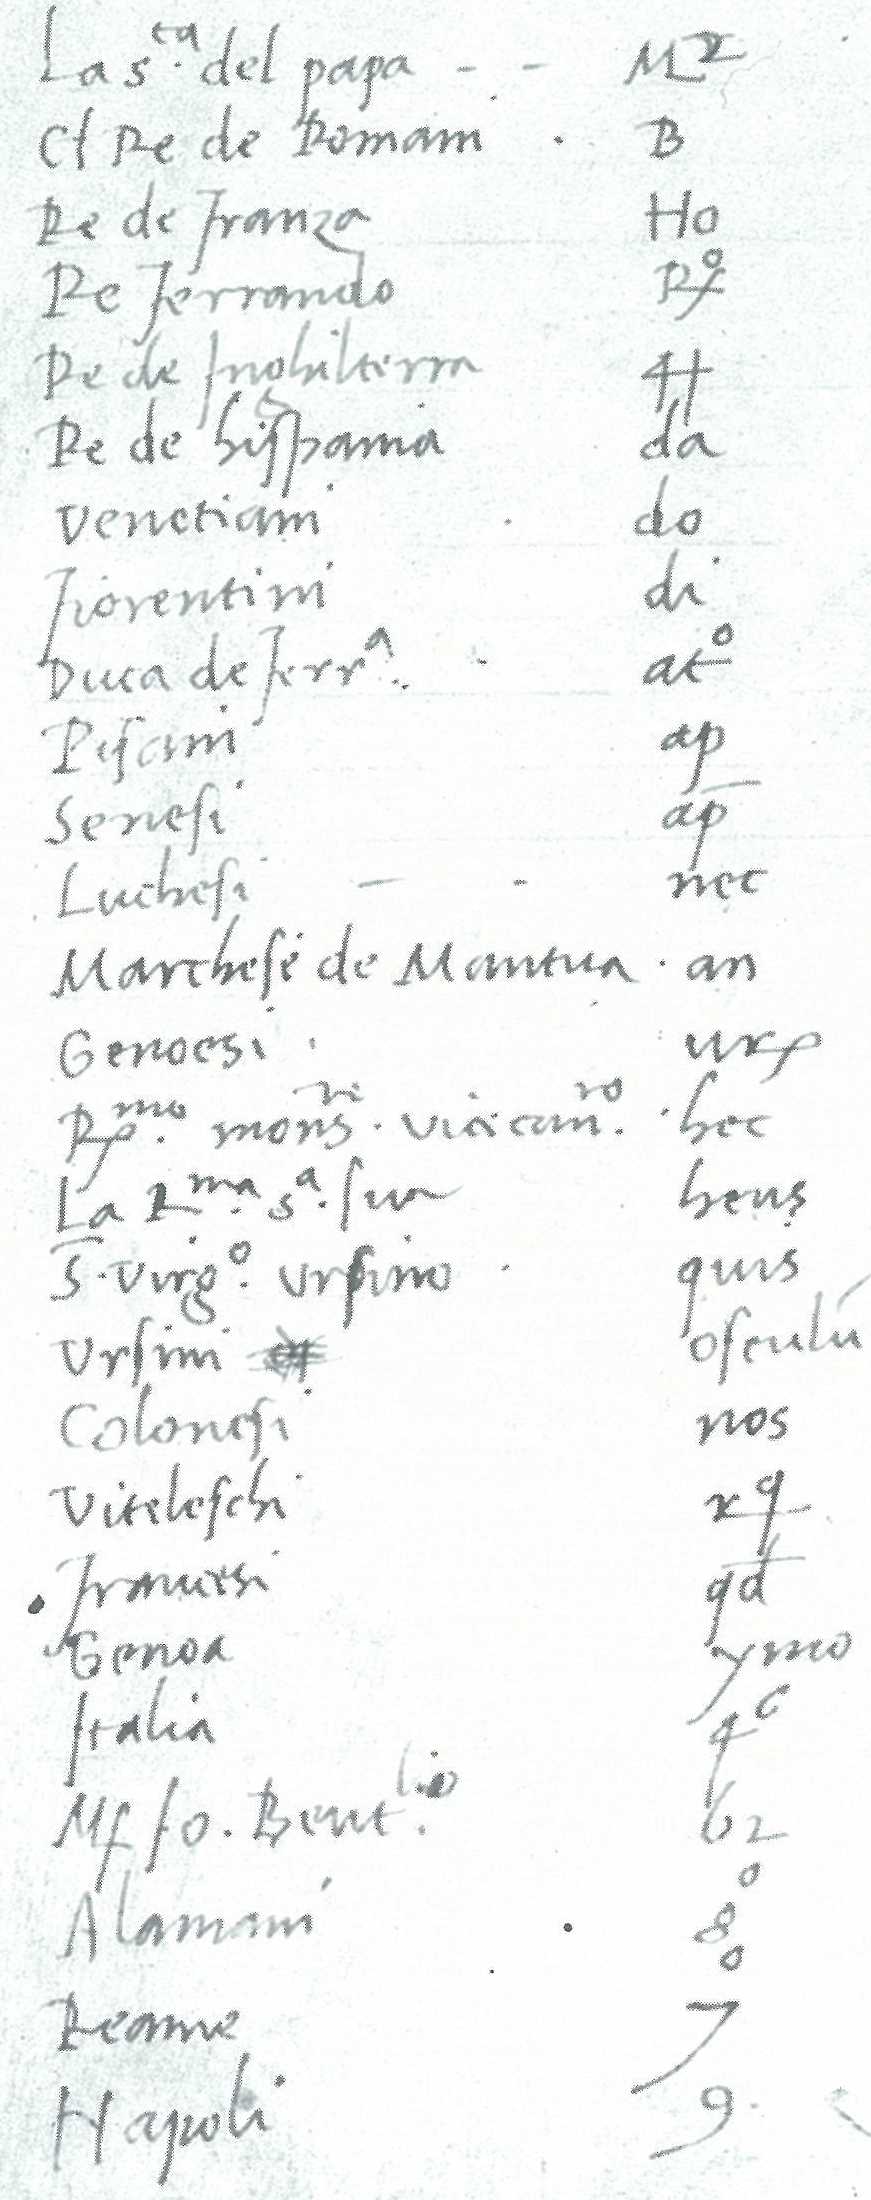 La s.ta del papa - - M
El Re de Romani . B
Re de franza Ho
Re ferrando Ro
Re de Inghilterra 4
Re de hispania da
Venetiani do
fiorentini di
Duca de ferr.a ato
Pisani ap
Senesi ap̄
Luchesi - - nec
Marchese de Mantua . an
Genoesi . ux
R.mo mons.re vicican.ro hec
La Ill.ma s.a sua heus
S. Virg.o Ursino quis
Ursini osculū
Colonesi nos
Viteleschi xq
francesi qd̄
Genoa ymo
Italia 4c
M Jo. Bent.lio b2
Alamani 8
Reame 7
Napoli 9